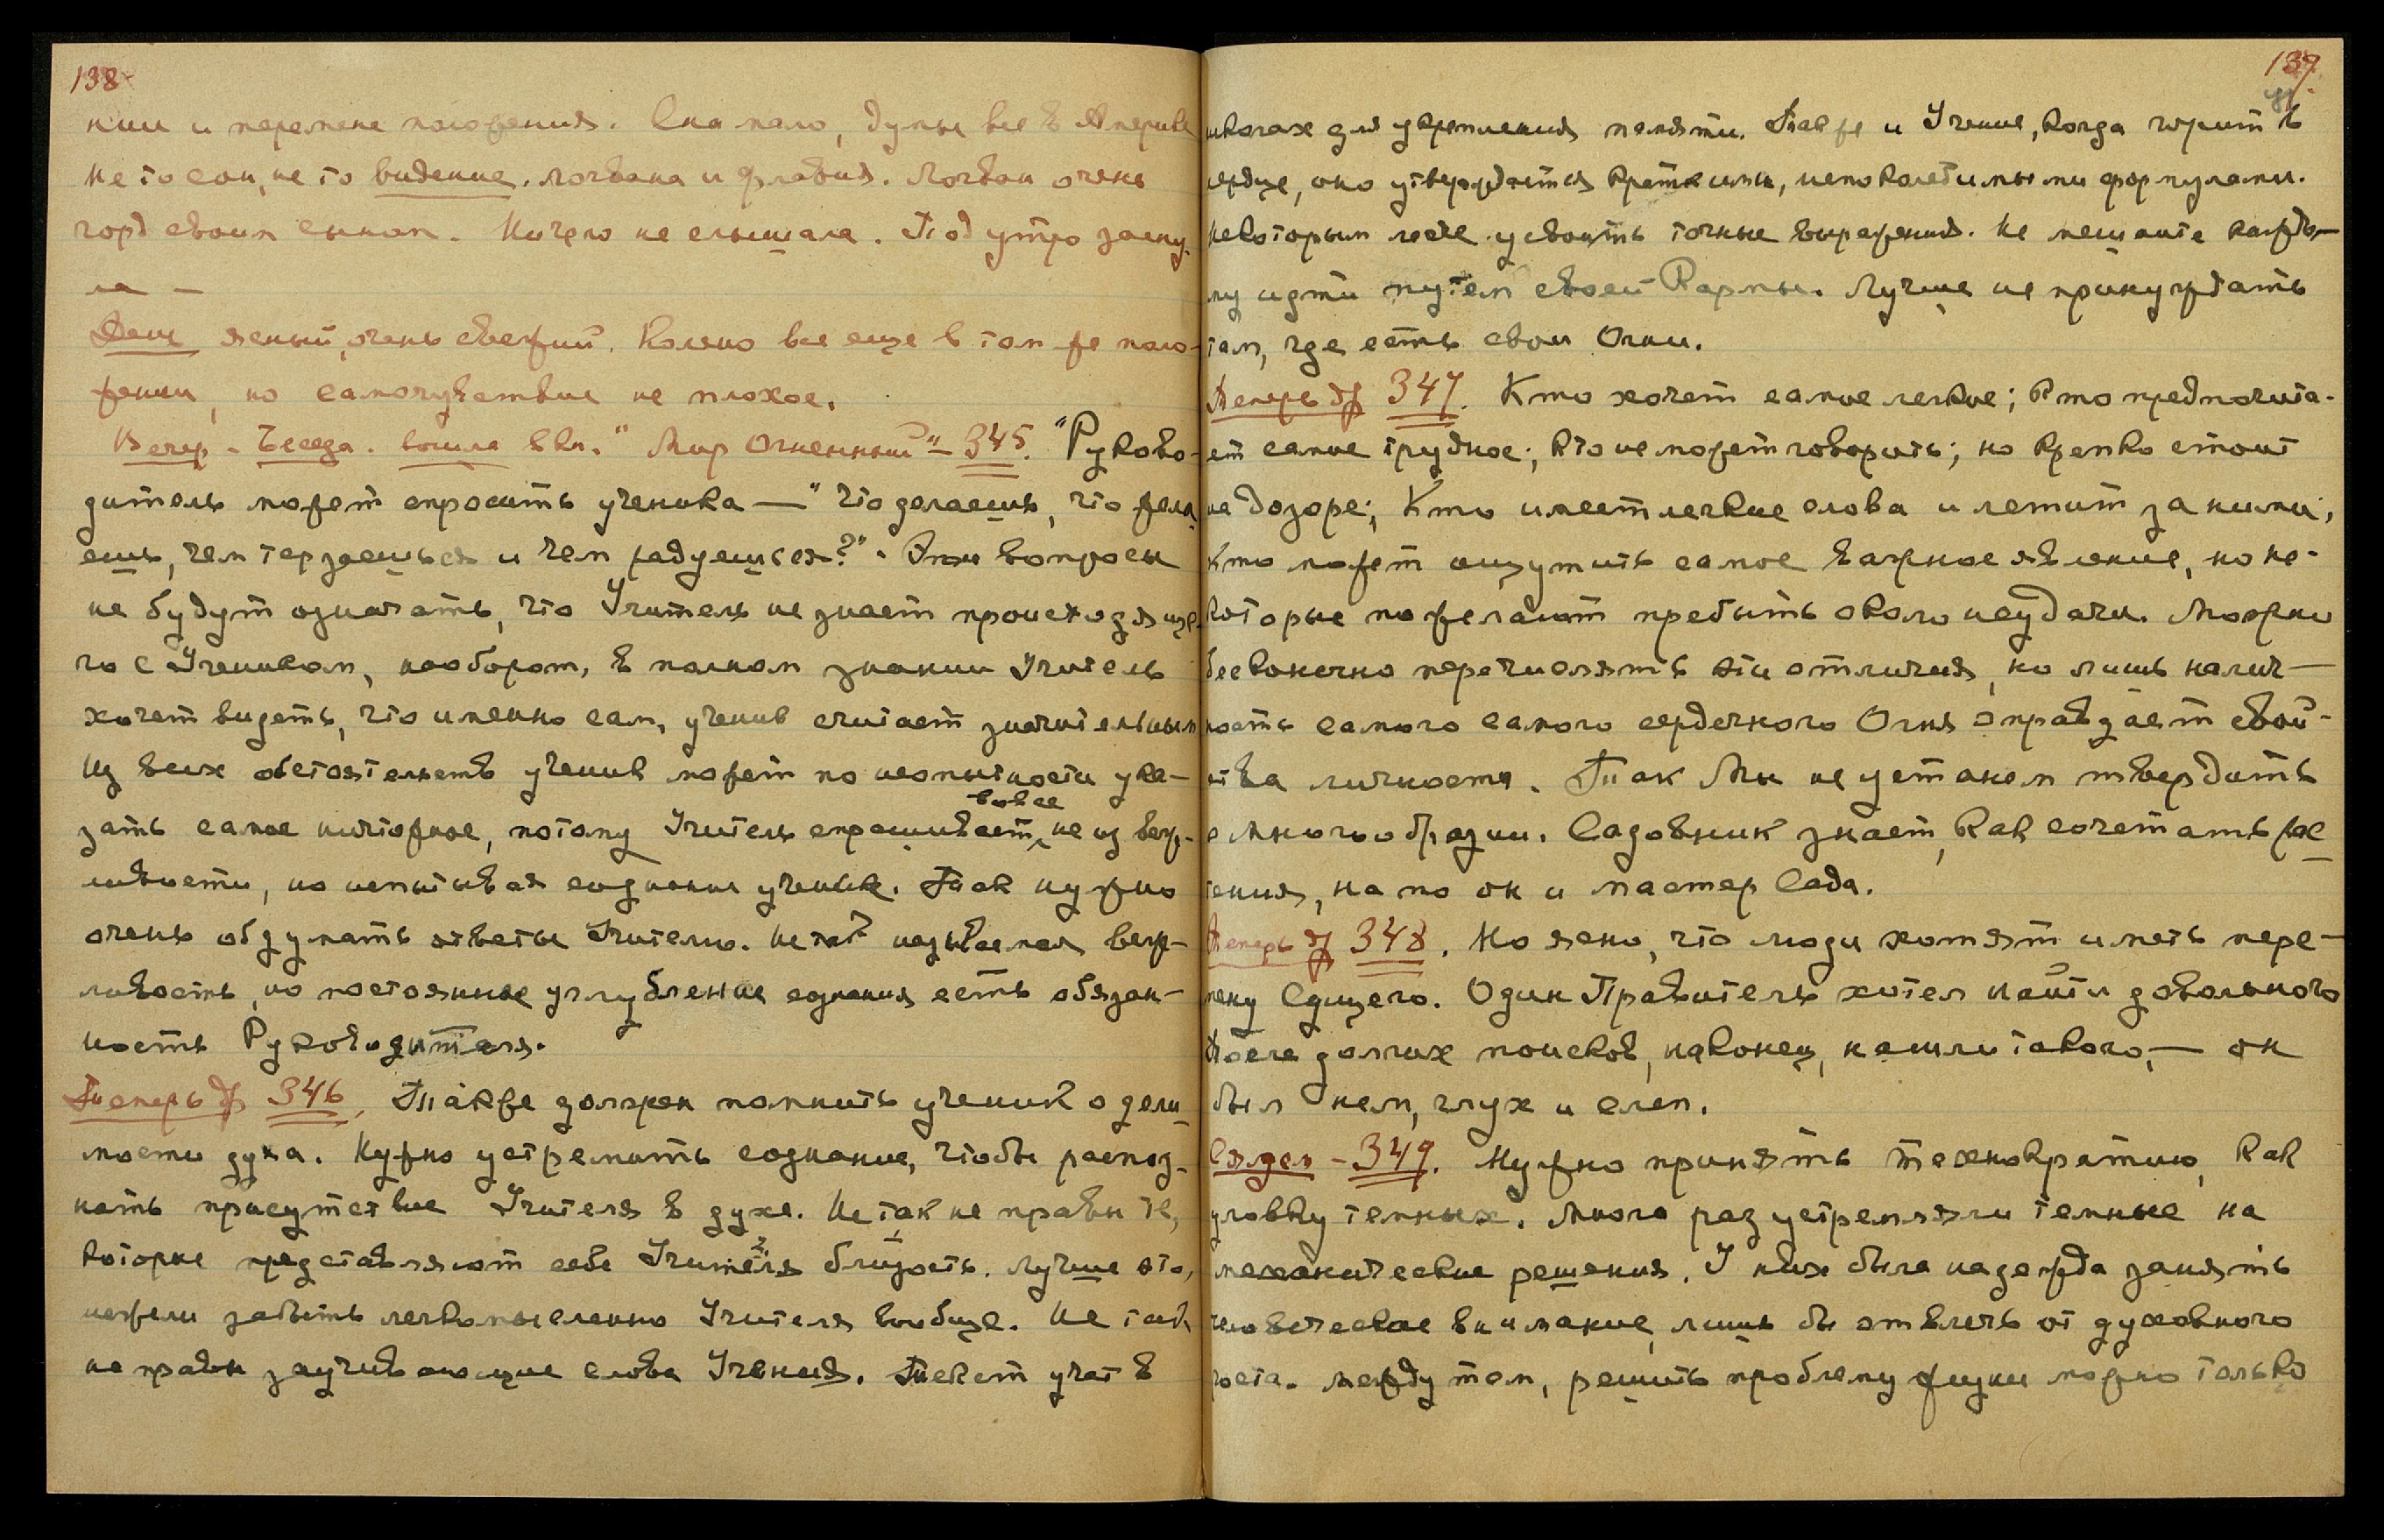 138
нии и перемене положения. Спа мало, думы все в Америке
Не то сон, не то видение. Логвана и Флавия. Логван очень
горд своим сыном. Ничего не слышала. Под утро засну-
ла —
День ясный, очень свежий. Колено все еще в том же поло-
жении, но самочувствие не плохое.
Вечер - Беседа. вошла в кн. "Мир Огненный" - 345. "Руково-
дитель может спросить ученика — "что делаешь, что жела-
ешь, чем терзаешься и чем радуешься?". Эти вопросы
не будут означать, что Учитель не знает происходяще-
го с Учеником, наоборот, в полном знании Учитель
хочет видеть, что именно сам, ученик считает значительным
Из всех обстоятельств ученик может по неопытности ука-
зать самое ничтожное, потому Учитель спрашивает вовсе не из веж-
ливости, но испытывая сознание ученика. Так нужно
очень обдумать ответы Учителю. Не так называемая веж-
ливость, но постоянное углубление сознания есть обязан-
ность Руководителя.
Теперь др 346. Также должен помнить ученик о дели-
мости духа. Нужно устремить сознание, чтобы распоз-
нать присутствие Учителя в духе. Не так не правы те,
которые представляют себе Учителя близость. Лучше это,
нежели забыть легкомысленно Учителя вообще. Не так
не правы заучивающие слова Учения. Текст учат в
139
школах для укрепления памяти. Также и Учение, когда горит в
сердце, оно утверждается краткими, непоколебимыми формулами.
Некоторым легче усвоить точные выражения. Не мешайте каждо-
му идти путем своей Кармы. Лучше не принуждать
там, где есть свои Огни.
Теперь др 347. Кто хочет самое легкое; кто предпочита-
ет самое трудное; кто не может говорить; но крепко стоит
на дозоре; Кто имеет легкие слова и летит за ними;
Кто может ощутить самое важное явление, но не-
которые пожелают пребыть около неудачи. Можно
бесконечно перечислять эти отличия, но лишь налич-
ность самого самого сердечного Огня оправдает свой-
ства личности. Так Мы не устанем твердить
о многообразии. Садовник знает, как сочетать рас
тения, на то он и мастер Сада.
Теперь др 348. Но ясно, что люди хотят иметь пере-
мену Сущего. Один Правитель хотел найти довольного
После долгих поисков, наконец, нашли такого, — он
был нем, глух и слеп.
Следом - 349. Нужно принять технократию, как
уловку темных. Много раз устремляли темные на
механические решения. У них была надежда занять
человеческое внимание, лишь бы отвлечь от духовного
роста. Между тем, решить проблему жизни можно только